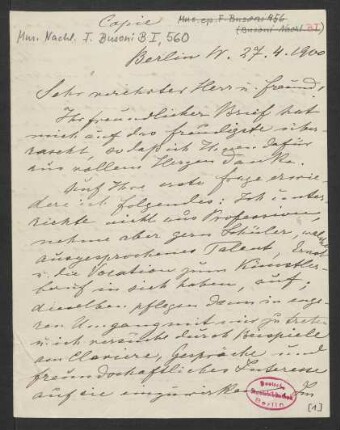 Copie
Mus. ep. F. Busoni 456
(Busoni-Nachl. B I)
Mus. Nachl. F. Busoni B I, 560
Berlin W. 27. 4. 1900
Sehr verehrter Herr u. Freund,
Ihr freundlicher Brief hat
mich auf das freudigste über-
rascht, so daß ich Ihnen dafür
aus vollem Herzen danke.
Auf Ihre erste Frage erwie-
dere ich folgendes: Ich unter-
richte nicht aus Profession,
nehme aber gern Schüler, welche
ausgesprochenes Talent, Ernst
u. die Vocation zum Künstler-
beruf in sich haben, auf;
dieselben pflegen dann in enge-
ren Umgang mit mir zu treten
u. ich versuche durch Beispiele
am Claviere, Gespräche und
freundschaftliches Interesse
auf sie einzuwirken. Im
Deutsche
Staatsbibliothek
Berlin
[1]